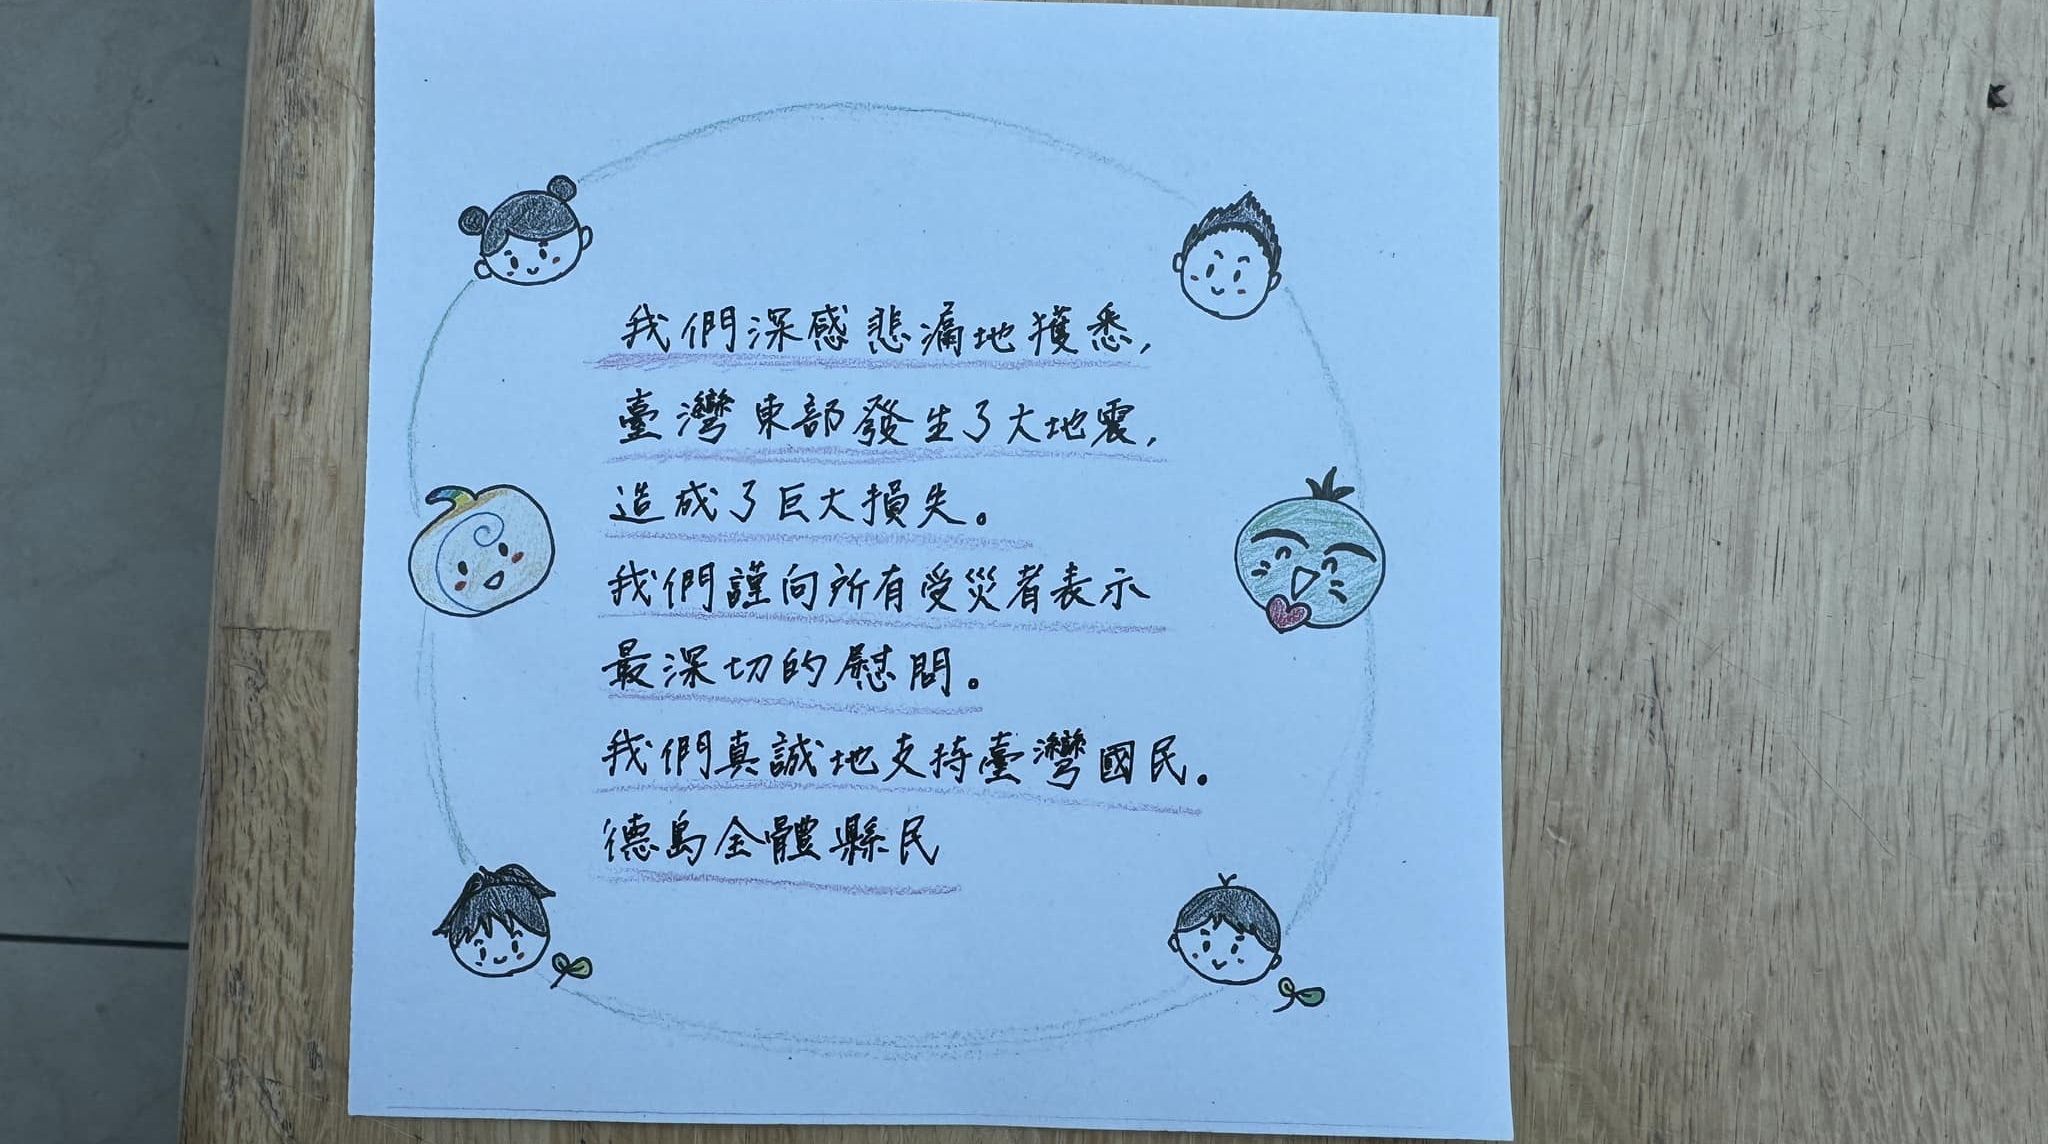 我們深感悲痛地獲悉，
臺灣東部發生了大地震，
造成了巨大損失。
我們謹向所有受災者表示
最深切的慰問。
我們真誠地支持臺灣國民。
德島全體縣民